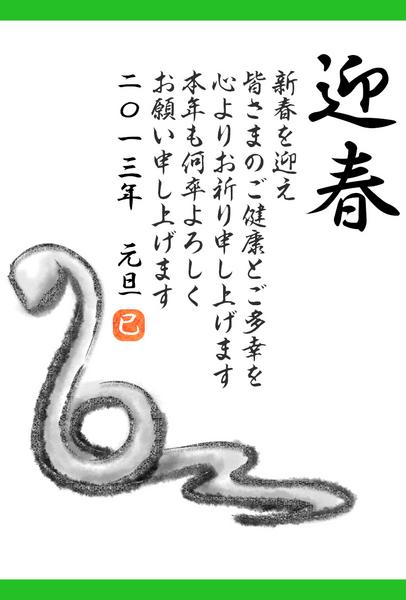 迎春
新春を迎え
皆さまのご健康とご多幸を
心よりお祈り申し上げます
本年も何卒よろしく
お願い申し上げます
二〇一三年　元旦
巳